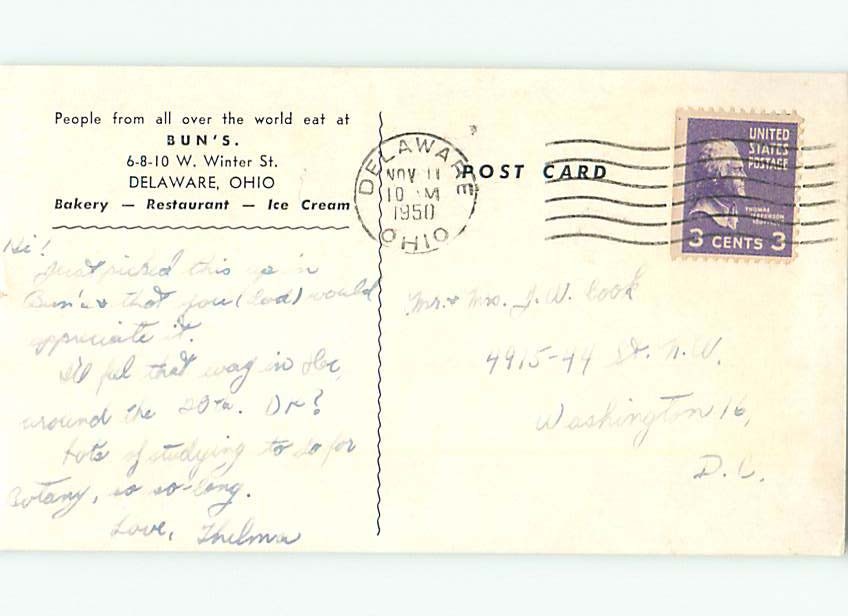 People from all over the world eat at
BUN'S.
6-8-10 W. Winter St.
DELAWARE, OHIO
Bakery — Restaurant — Ice Cream
Hi!
Just picked this up in
Bun's & that you (Dad) would
appreciate it.
I'll feel that way in Dec,
around the 20th. Dr?
Lots of studying to do for
Botany, so so-long.
Love, Thelma
DELAWARE
NOV 11
10 M
1950
OHIO
POST CARD
UNITED
STATES
POSTAGE
THOMAS
JEFFERSON
3 CENTS 3
Mr. & Mrs. J. W. Cook
4915-44 St. N.W.
Washington 16,
D.C.